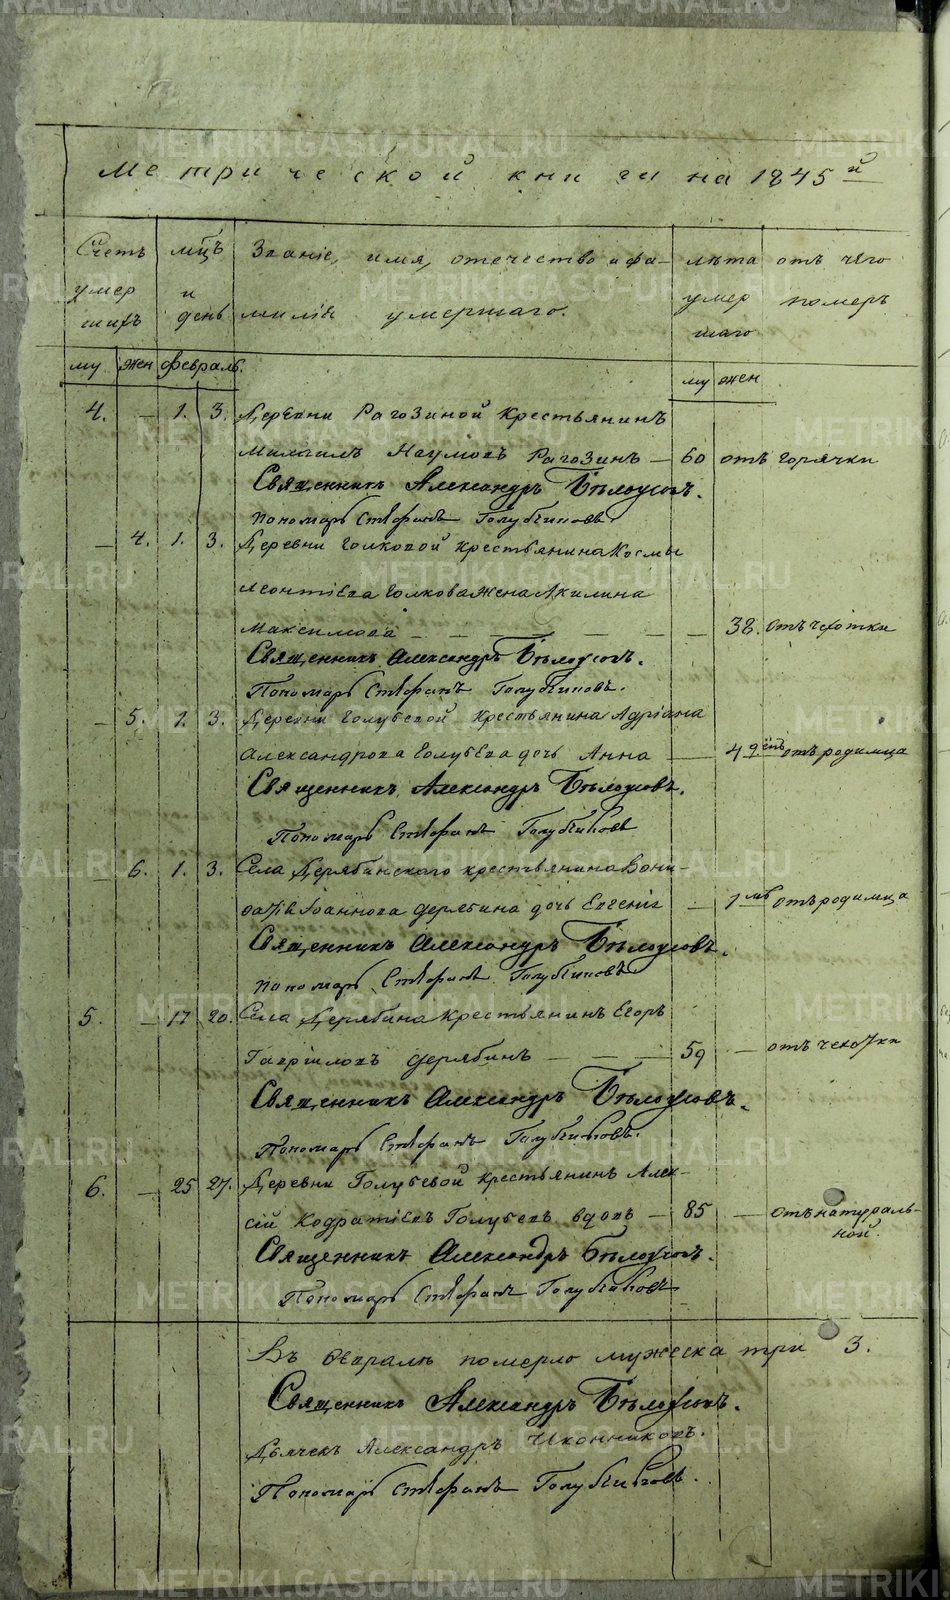 Метрической книги на 1845й
Счетъ умер шихъ
мцъ и день
Званіе, имя, отечество и фа-
милія умершаго.
лѣта умер шаго
отъ чего померъ
му жен февраль.
му жен
4. — 1. 3. Деревни Рагозиной крестьянинъ
Михаилъ Наумовъ Рагозинъ — 60 отъ горячки
Священникъ Александръ Бѣлоусовъ.
Пономарь Стефанъ Голубчиковъ.
— 4. 1. 3. Деревни Голковой крестьянина Космы
Леонтіева Голкова жена Акилина
Максимова — — — — 38. отъ чехотки
Священникъ Александръ Бѣлоусовъ.
Пономарь Стефанъ Голубчиковъ.
— 5. 1. 3. Деревни Голубевой крестьянина Адріана
Александрова Голубева дочь Анна — 4 ден отъ родимца
Священникъ Александръ Бѣлоусовъ.
Пономарь Стефанъ Голубчиковъ
— 6. 1. 3. Села Дерябинскаго крестьянина Вони-
фатія Іоаннова Дерябина дочь Евгенія — 1 мѣ отъ родимца
Священникъ Александръ Бѣлоусовъ.
Пономарь Стефанъ Голубчиковъ
5. — 17 20. Села Дерябина крестьянинъ Егоръ
Гавриловъ Дерябинъ — — — 59 — отъ чехотки
Священникъ Александръ Бѣлоусовъ.
Пономарь Стефанъ Голубчиковъ.
6. — 25 27. Деревни Голубевой крестьянинъ Алек-
сій Кодратіевъ Голубевъ вдовъ — 85 — отъ натураль-
ной.
Священникъ Александръ Бѣлоусовъ.
Пономарь Стефанъ Голубчиковъ
Въ Февралѣ померло мужеска три 3.
Священникъ Александръ Бѣлоусовъ.
Дьячекъ Александръ Иконниковъ.
Пономарь Стефанъ Голубчиковъ.
METRIKI.GASO-URAL.RU